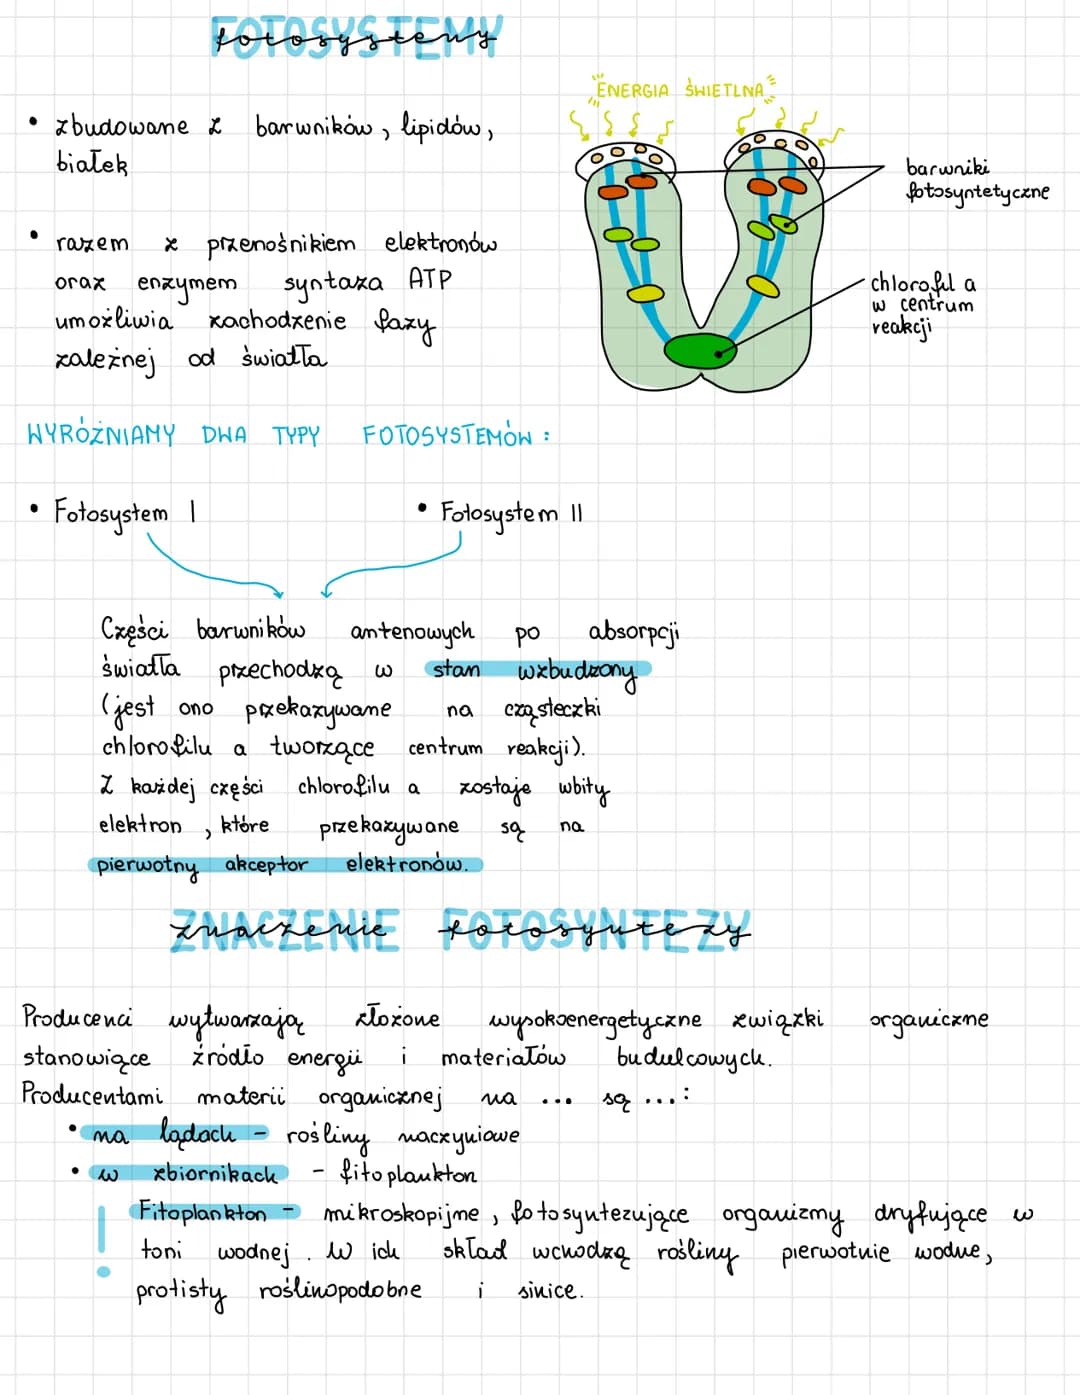 FOTOSYSTEMY
fotosystemy
ENERGIA ŚWIETLNA
• zbudowane z barwników, lipidów,
białek
barwniki
fotosyntetyczne
• razem z przenośnikiem elektronów
oraz enzymem syntaza ATP
umożliwia zachodzenie fazy
zależnej od światła
chlorofil a
w centrum
reakcji
WYRÓŻNIAMY DWA TYPY FOTOSYSTEMÓW:
• Fotosystem I
• Fotosystem II
Części barwników antenowych po absorpcji
światła przechodzą w stan wzbudzony
(jest ono przekazywane na cząsteczki
chlorofilu a tworzące centrum reakcji).
Z każdej części chlorofilu a zostaje wbity
elektron, które przekazywane są na
pierwotny akceptor elektronów.
ZNACZENIE FOTOSYNTEZY
znaczenie fotosyntezy
Producenci wytwarzają złożone wysokoenergetyczne związki organiczne
stanowiące źródło energii i materiałów budulcowych.
Producentami materii organicznej na ... są ...:
• na lądach - rośliny naczyniowe
• w zbiornikach - fitoplankton
! Fitoplankton - mikroskopijme, fotosyntezujące organizmy dryfujące w
toni wodnej. W ich skład wchodzą rośliny pierwotnie wodne,
protisty roślinopodobne i sinice.